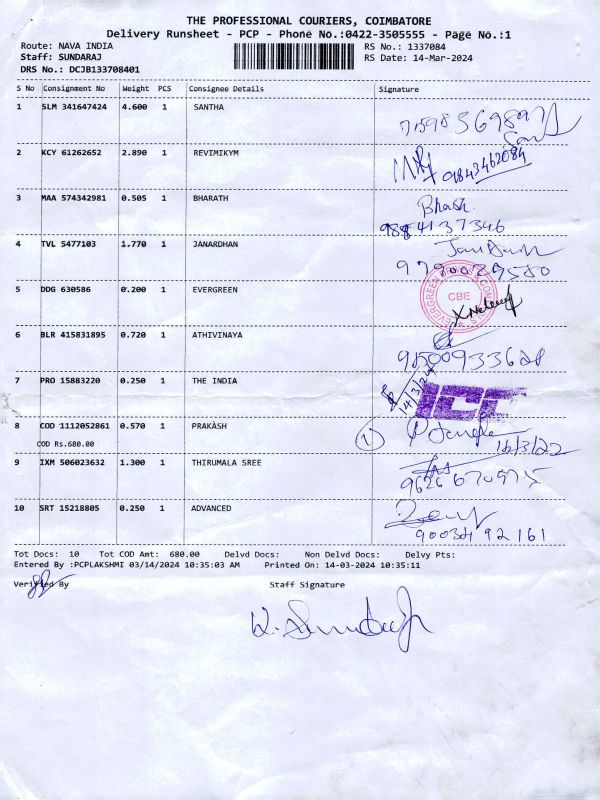 THE PROFESSIONAL COURIERS, COIMBATORE
Delivery Runsheet - PCP - Phone No.:0422-3505555 - Page No.:1
Route: NAVA INDIA RS No.: 1337084
Staff: SUNDARAJ RS Date: 14-Mar-2024
DRS No.: DCJB133708401
S No Consignment No Weight PCS Consignee Details Signature
1 SLM 341647424 4.600 1 SANTHA
2 KCY 61262652 2.890 1 REVIMIKYM 9843462084
3 MAA 574342981 0.505 1 BHARATH Bharth
9884137346
4 TVL 5477103 1.770 1 JANARDHAN
9790029580
5 DDG 630586 0.200 1 EVERGREEN EVERGREEN CBE
6 BLR 415831895 0.720 1 ATHIVINAYA
91500933628
7 PRO 15883220 0.250 1 THE INDIA 14/3/24 ICC
8 COD 1112052861 0.570 1 PRAKASH
COD Rs.680.00
9 IXM 506023632 1.300 1 THIRUMALA SREE
9626670575
10 SRT 15218805 0.250 1 ADVANCED
9003492161
Tot Docs: 10 Tot COD Amt: 680.00 Delvd Docs: Non Delvd Docs: Delvy Pts:
Entered By :PCPLAKSHMI 03/14/2024 10:35:03 AM Printed On: 14-03-2024 10:35:11
Verified By Staff Signature